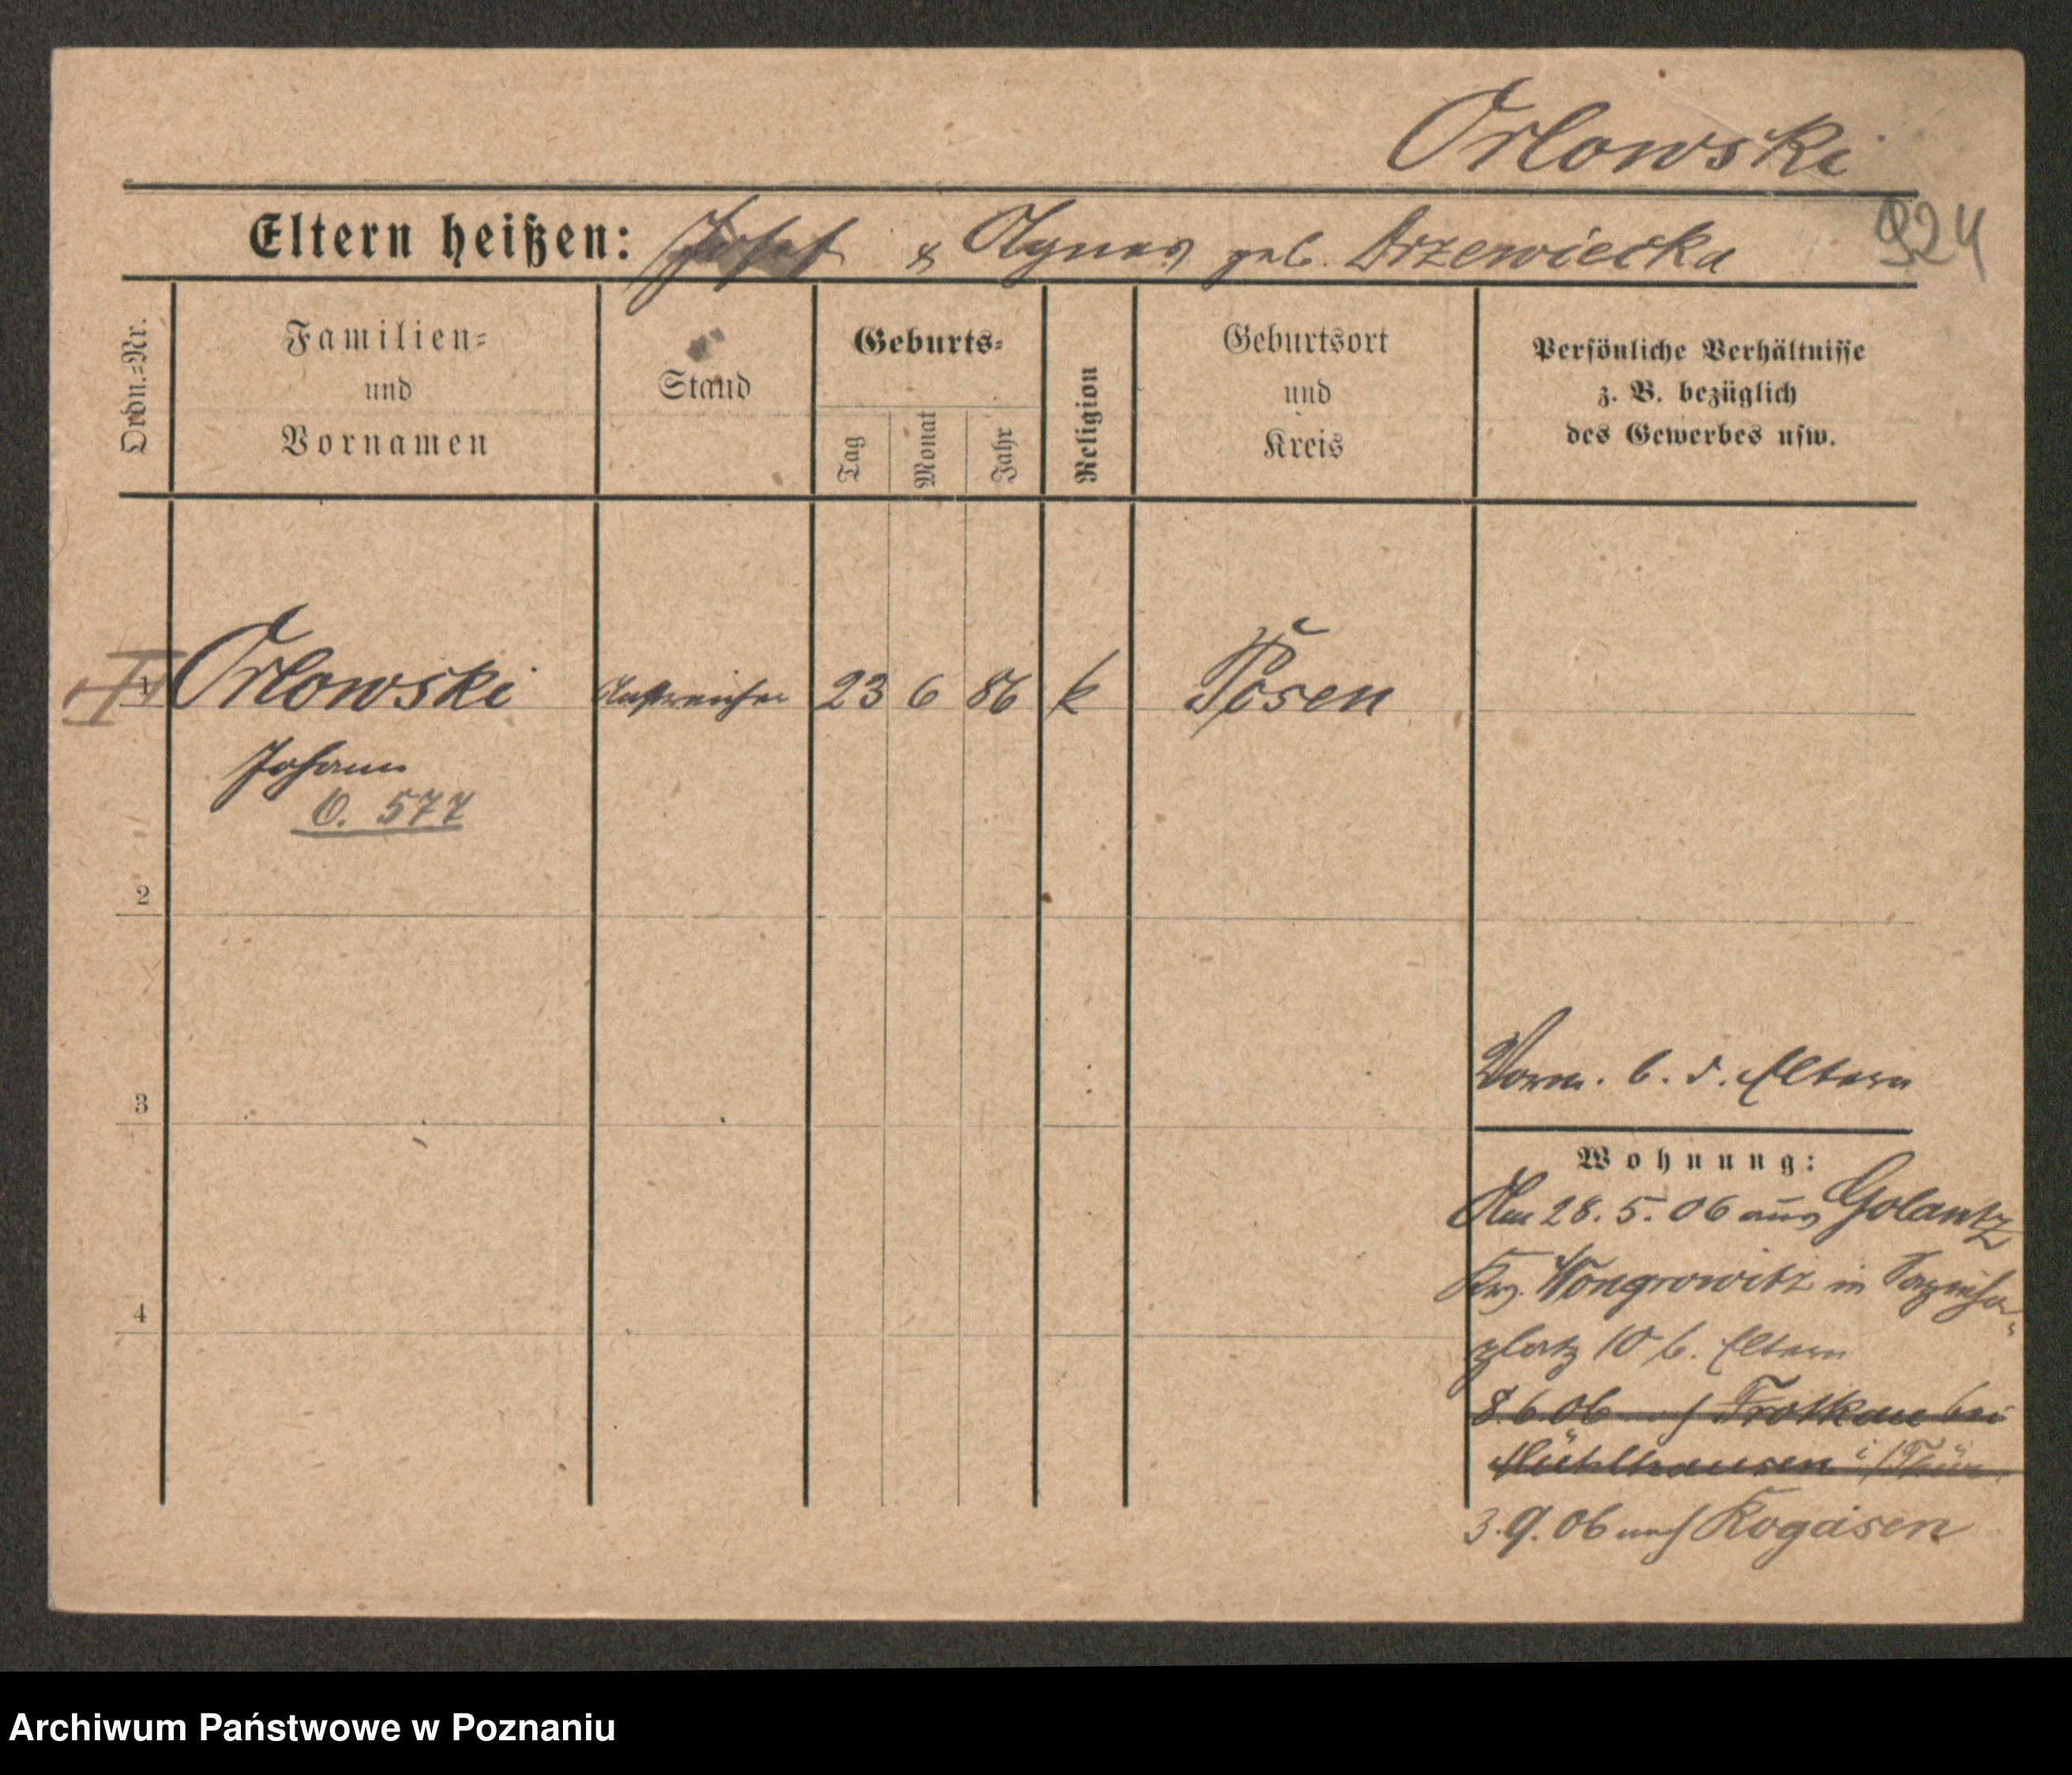 Orlowski
924
Eltern heißen: Josef & Agnes geb. Drzewiecka
Ordn.-Nr.
Familien=
und
Vornamen
Stand
Geburts=
Tag
Monat
Jahr
Religion
Geburtsort
und
Kreis
Persönliche Verhältnisse
z. B. bezüglich
des Gewerbes usw.
1 Orlowski Anstreicher 23 6 86 k Posen
Johann
O. 577
2
3
Vorm. b. d. Eltern
Wohnung:
Am 28. 5. 06 aus Golantz
Krs. Wongrowitz in
4
platz 10 b. Eltern
8.6.06 nach Trotkau bei
Mühlhausen i/Thür.
3.9.06 nach Rogasen
Archiwum Państwowe w Poznaniu